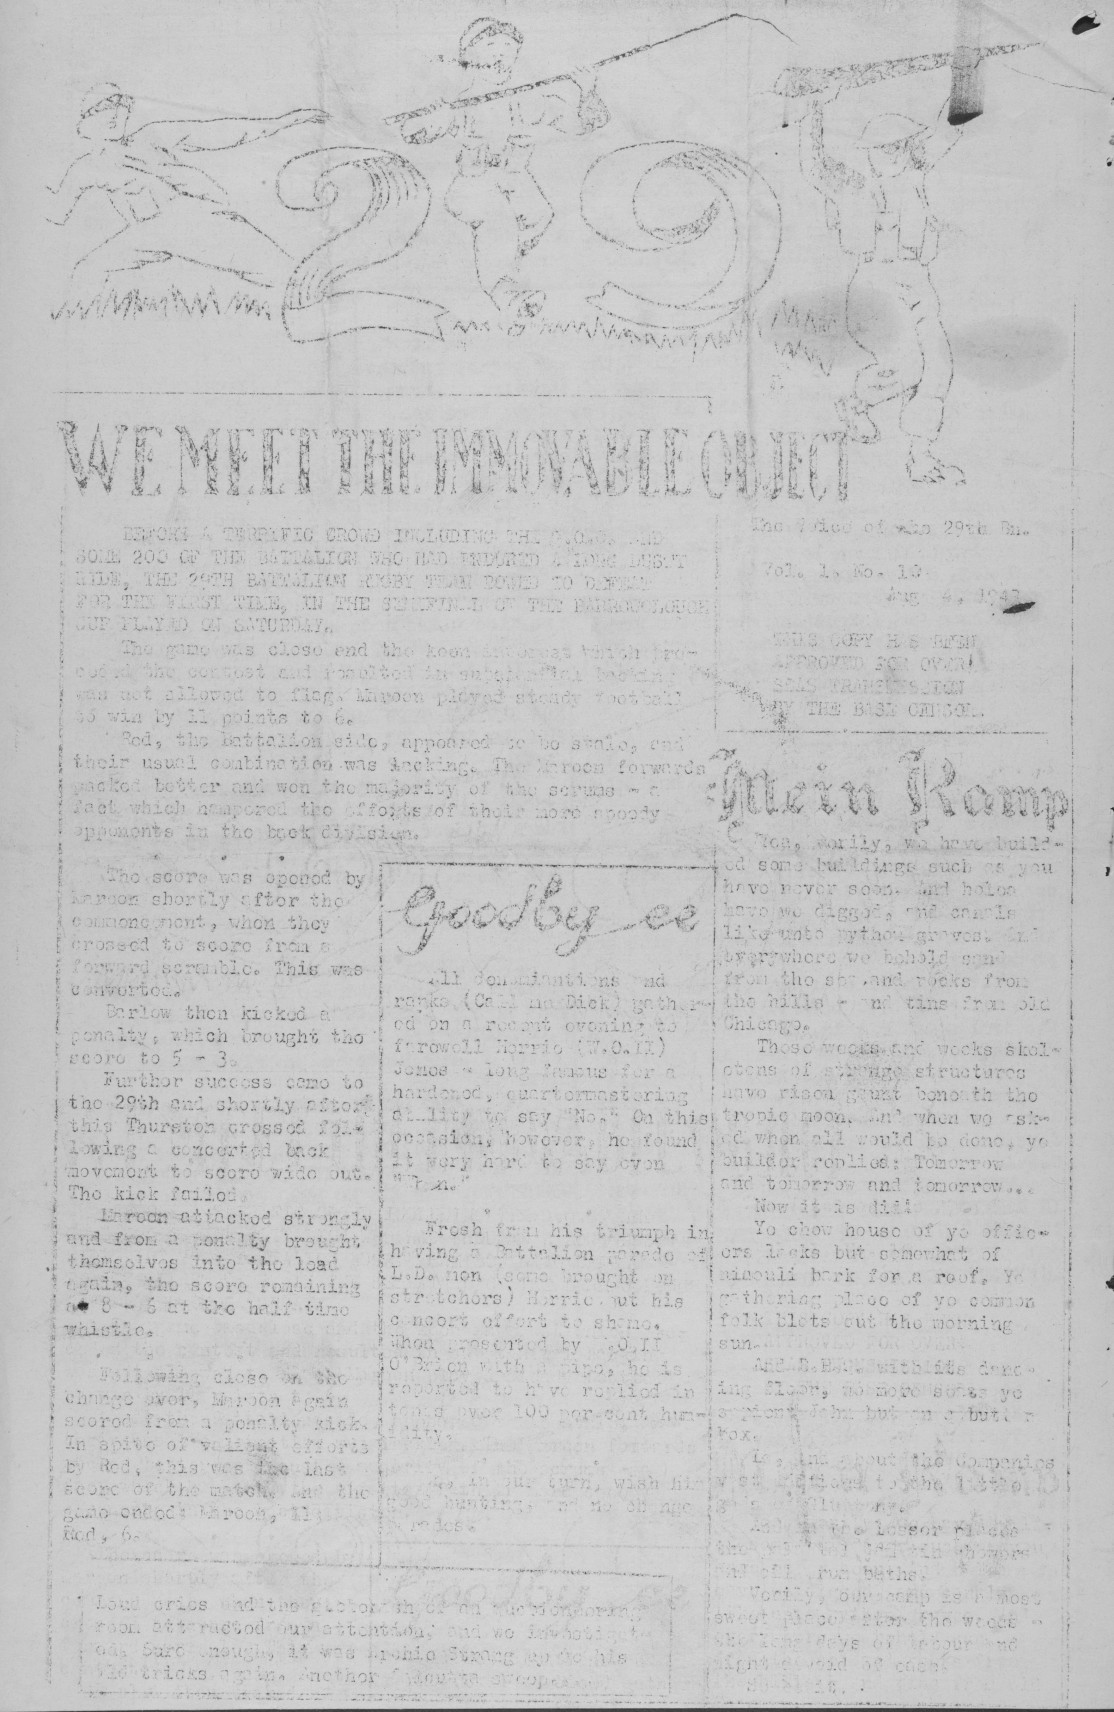 29
WE MEET THE IMMOVABLE OBJECT
BEFORE A TERRIFIC CROWD INCLUDING THE AND
SOME 200 OF THE BATTALION WHO HAD ENDURED A LONG DUSTY
RIDE, THE 29TH BATTALION RUGBY TEAM BOWED TO DEFEAT
FOR THE FIRST TIME, IN THE SEMIFINAL OF THE BARROWCLOUGH
CUP PLAYED ON SATURDAY.
The game was close and the keen interest which pre-
ceded the contest and resulted in substantial backing
was not allowed to flag. Maroon played steady football
to win by 11 points to 6.
Red, the Battalion side, appeared to be stale, and
their usual combination was lacking. The Maroon forwards
packed better and won the majority of the scrums - a
fact which hampered the efforts of their more speedy
opponents in the back division.
The score was opened by
Maroon shortly after the
commencement, when they
crossed to score from a
forward scramble. This was
converted.
Barlow then kicked a
penalty, which brought the
score to 5 - 3.
Further success came to
the 29th and shortly after
this Thurston crossed fol-
lowing a concerted back
movement to score wide out.
The kick failed.
Maroon attacked strongly
and from a penalty brought
themselves into the lead
again, the score remaining
at 8 - 6 at the half time
whistle.
Following close on the
change over, Maroon again
scored from a penalty kick.
In spite of valiant efforts
by Red, this was the last
score of the match. And the
game ended: Maroon, 11;
Red, 6.
Goodby ee
All denominations and
ranks (Call me Dick) gather-
ed on a recent evening to
farewell Morrie (W.O.II)
Jones - long famous for a
hardened, quartermastering
ability to say "No." On this
occasion, however, he found
it very hard to say even
"When."
Fresh from his triumph in
having a Battalion parade of
L.D. men (some brought on
stretchers) Morrie put his
concert effort to shame.
When presented by W.O.II
O'Brien with a pipe, he is
reported to have replied in
tones over 100 per cent hum-
idity.
We, in our turn, wish him
good hunting, and no change
parades.
Loud cries and the of an auctioneering
room attracted our attention, and we investigat-
ed. Sure enough, it was Archie Strang up to his
old tricks again. Another Calcutta swoop
The Voice of the 29th Bn.
Vol. 1. No. 10
Aug 4, 1943
THIS COPY HAS BEEN
APPROVED FOR OVER-
SEAS TRANSMISSION
BY THE BASE CENSOR.
Mein Kamp
Yea, verily, we have build-
ed some buildings such as you
have never seen. And holes
have we digged, and canals
like unto python graves. And
everywhere we behold sand
from the sea, and rocks from
the hills - and tins from old
Chicago.
These weeks and weeks skel-
etons of strange structures
have risen gaunt beneath the
tropic moon. And when we ask-
ed when all would be done, ye
builder replied: Tomorrow
and tomorrow and tomorrow...
Now it is did!
Ye chow house of ye offic-
ers lacks but somewhat of
niaouli bark for a roof. Ye
gathering place of ye common
folk blots out the morning
sun.
with its danc-
ing floor, no more seats ye
sapient John but on a butter
box.
Lo, and about the Companies
vast edifices to the little
And in the lesser places
the tin showers
and oil drum baths.
Verily, our camp is a most
sweet place after the weeks -
the long days of labour and
night devoid of ease.
So be it.